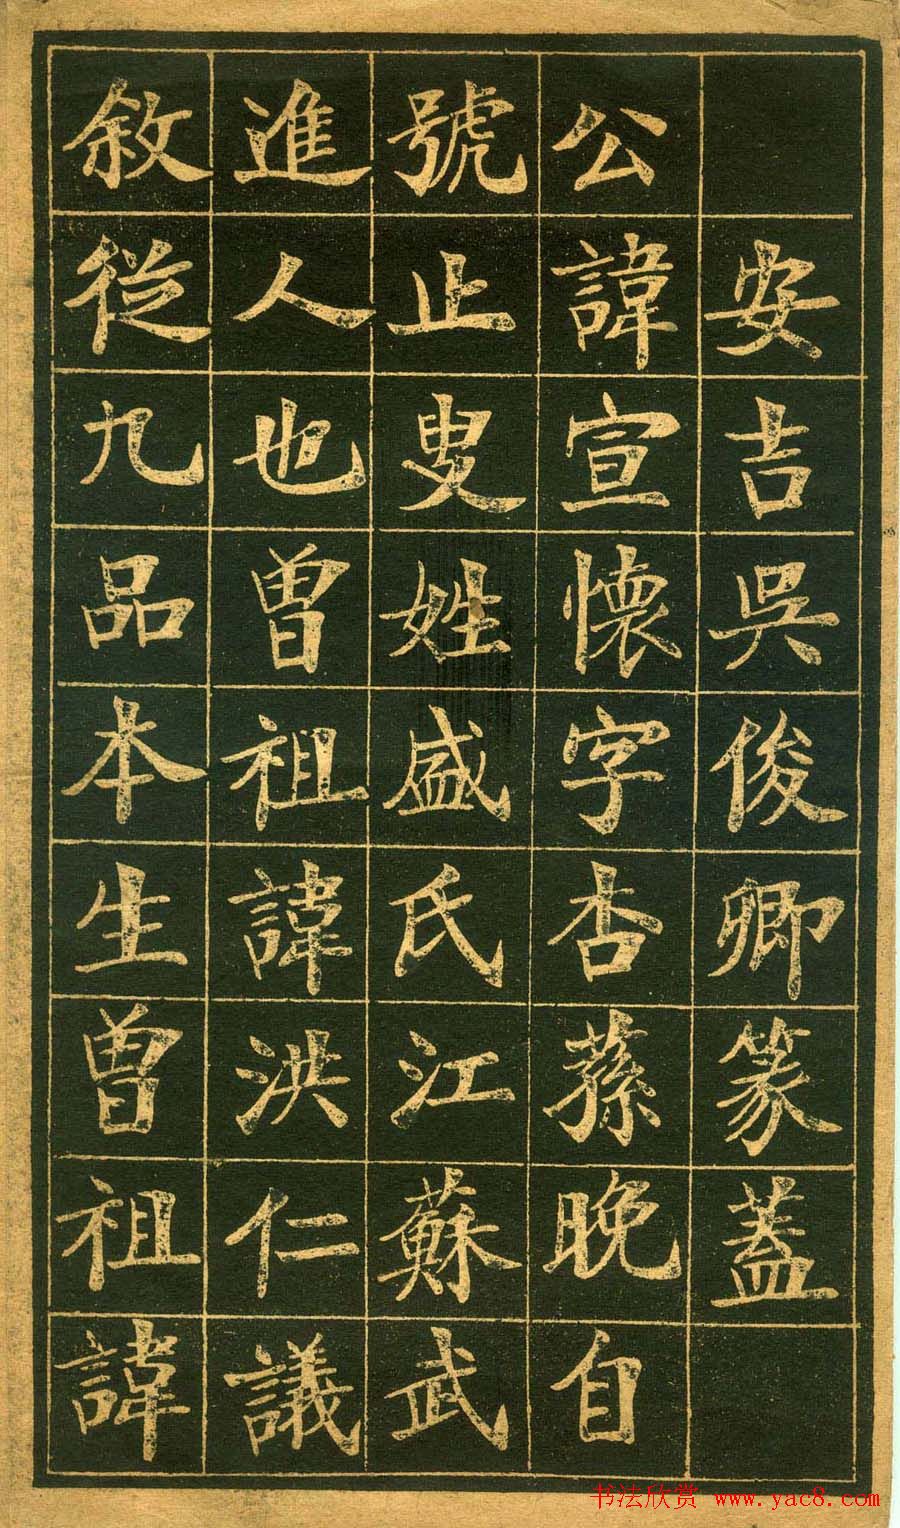 安吉吳俊卿篆蓋
公諱宣懷字杏蓀晚自
號止叟姓盛氏江蘇武
進人也曾祖諱洪仁議
敘從九品本生曾祖諱
书法欣赏 www.yac8.com